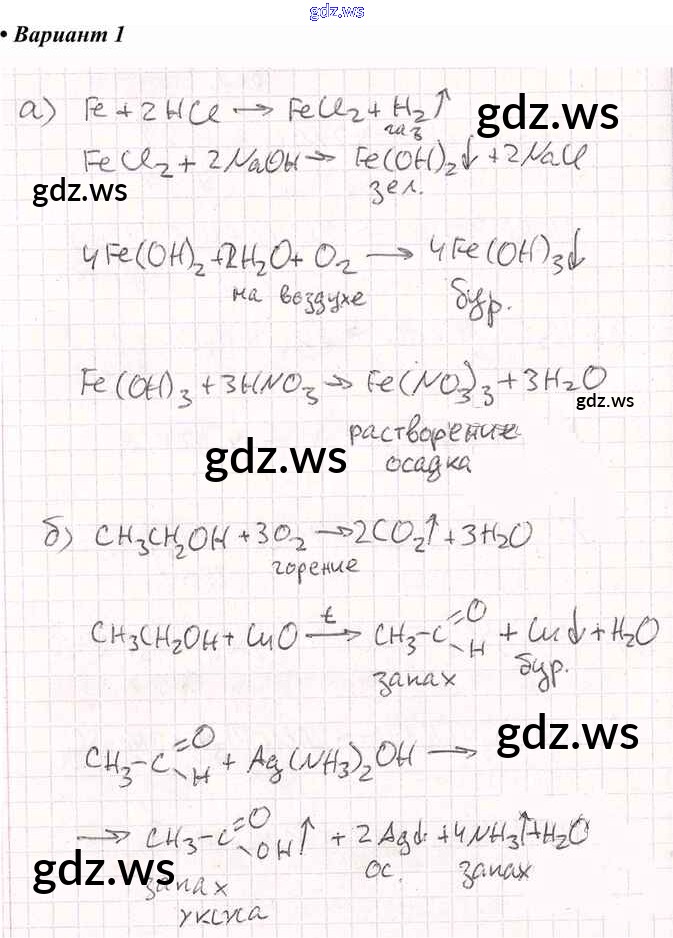 gdz.ws
• Вариант 1
а) Fe + 2HCl → FeCl2 + H2↑
газ
gdz.ws
FeCl2 + 2NaOH → Fe(OH)2↓ + 2NaCl
зел.
gdz.ws
4Fe(OH)2 + 2H2O + O2 → 4Fe(OH)3↓
на воздухе
бур.
Fe(OH)3 + 3HNO3 → Fe(NO3)3 + 3H2O
gdz.ws
растворение
осадка
gdz.ws
б) CH3CH2OH + 3O2 → 2CO2↑ + 3H2O
горение
CH3CH2OH + CuO →t CH3-C=O-H + Cu↓ + H2O
запах
бур.
gdz.ws
CH3-C=O-H + Ag(NH3)2OH →
→ CH3-C=O-OH↑ + 2Ag↓ + 4NH3↑ + H2O
gdz.ws
запах
ос.
запах
уксуса